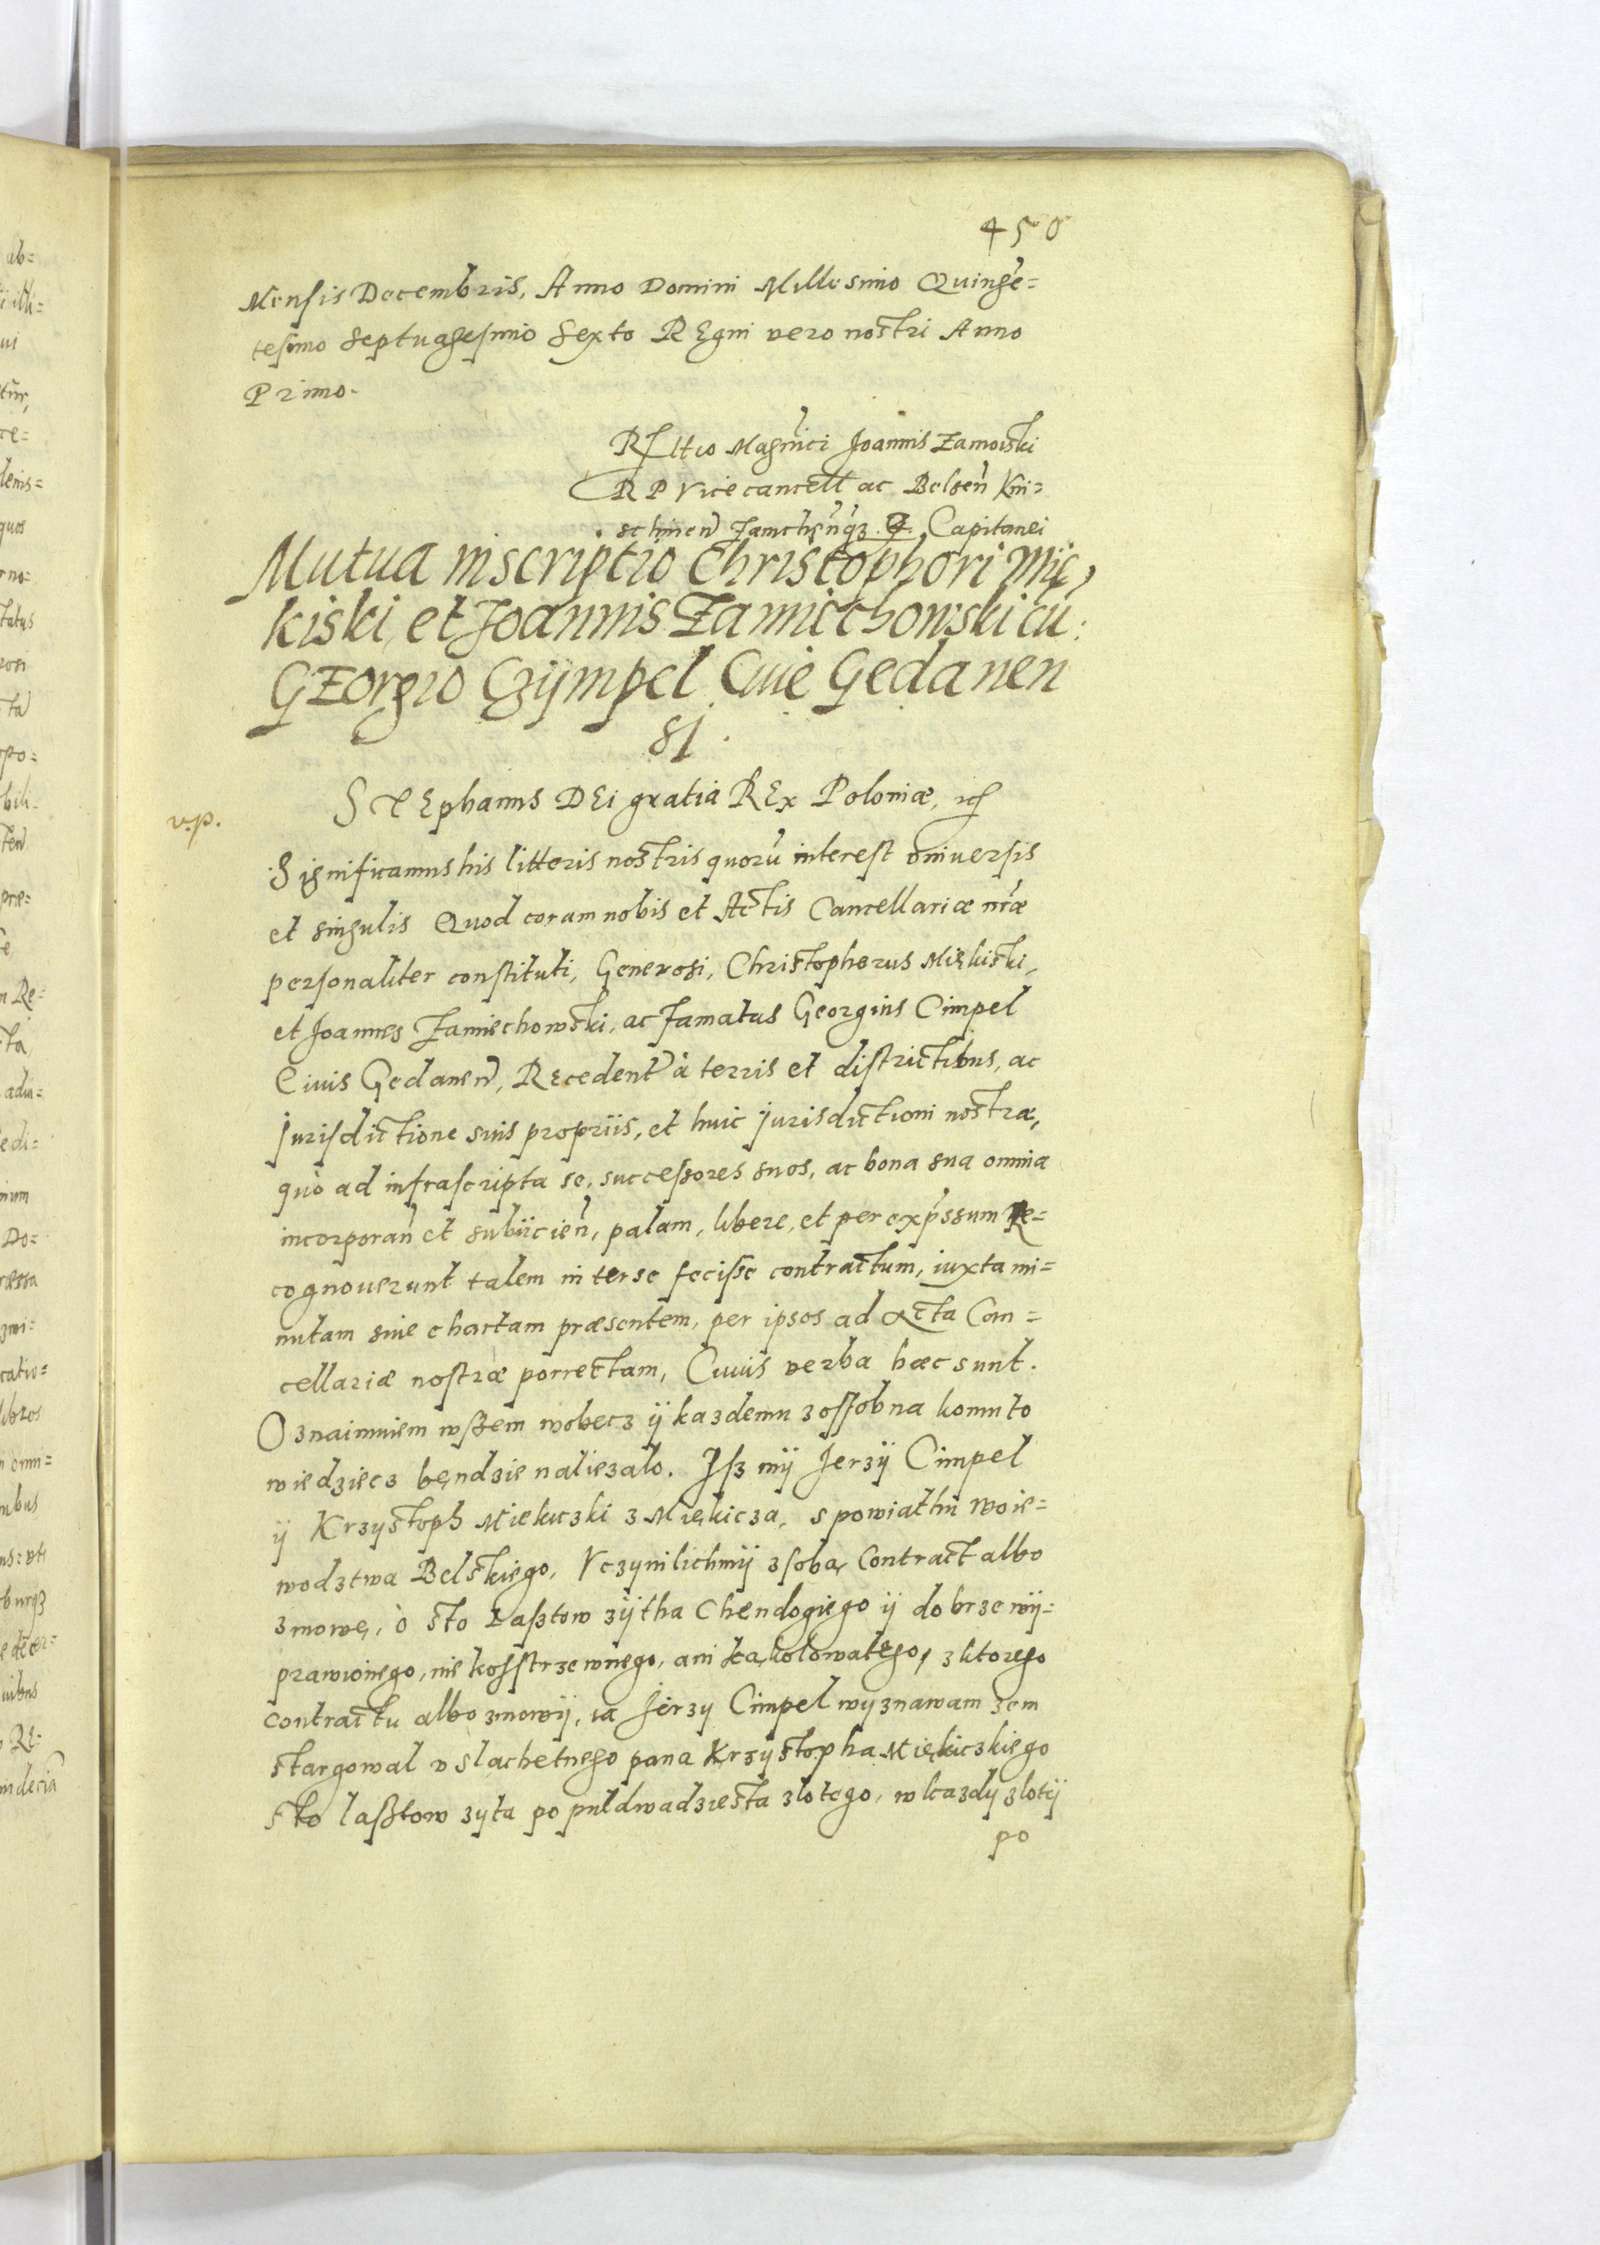 450
Mensis Decembris, Anno Domini Millesimo Quinge=
tesimo Septuagesimo Sexto REgni vero nostri Anno
Primo.
Rltio Magnici Joannis Zamoiski
RP Vicecancell ac Belsen Kni=
schinen Zamchenqz Capitanei
Mutua inscriptio Christophori Mię,
kiski, et Joannis Zamiechowski cu:
GEorgio Czÿmpel Ciue Gedanen
si.
STEphanus DEi gratia REx Poloniæ, etc
v.p.
Significamus his litteris nostris quorū interest vniuersis
et singulis Quod coram nobis et Actis Cancellariæ nr̄æ
personaliter constituti, Generosi, Christophorus Miękiski,
et Joannes Zamiechowski, ac famatus Georgius Cimpel
Ciuis Gedanen, Recedent à terris et districtibus, ac
Jurisdictione suis propriis, et huic Jurisdictioni nostræ,
quò ad infrascripta se, successores suos, ac bona sua omnia
incorporan et subiicien, palam, libere, et per expssum Re=
cognouerunt talem inter se fecisse contractum, iuxta mi=
nutam siue chartam præsentem, per ipsos ad Acta Can=
cellariæ nostræ porrectam, Cuius verba hæc sunt.
Oznaimuiem wßem wobecz ÿ kazdemu zossobna komu to
wiedziecz bęndzie naliezalo. Jsz mÿ Jerzÿ Cimpel
ÿ Krzÿstoph Miękiczki z Miękicza, s powiathu woie=
wodztwa Belskiego, Vczÿnilichmÿ zsobą Contract albo
zmowę, ò sto Łasztow zÿtha Chendogiego ÿ dobrze wÿ=
prawionego, nie kosstrzewnego, ani kąkolowatego, z ktorego
contractu albo zmowÿ, ia Jerzy Cimpel wyznawam zem
stargowal v slachetnego pana Krzÿstopha Miękiczkiego
sto lasztow zyta po puldwadziesta zlotego, w kazdy zlotÿ
po